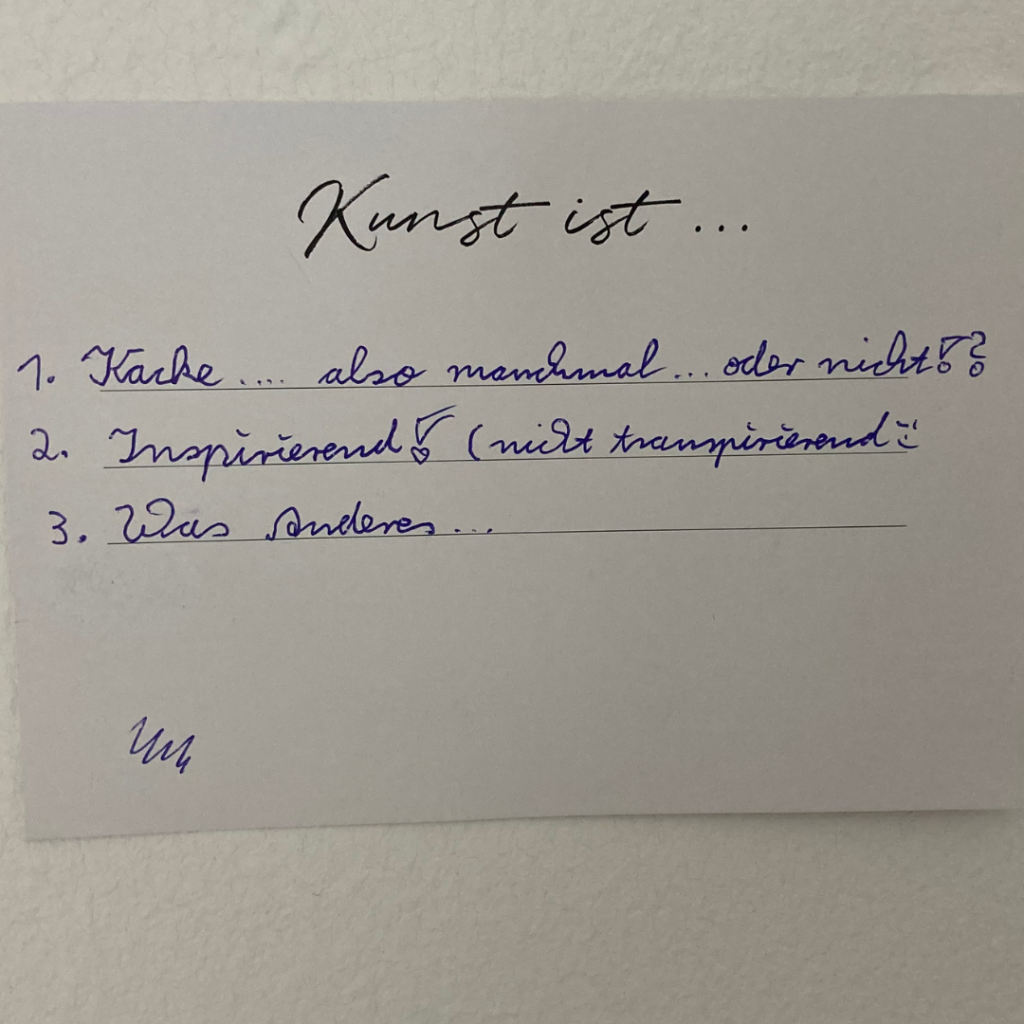 Kunst ist ...
1. Kacke .... also manchmal ... oder nicht!?
2. Inspirierend! (nicht transpirierend :)
3. Was Anderes ...